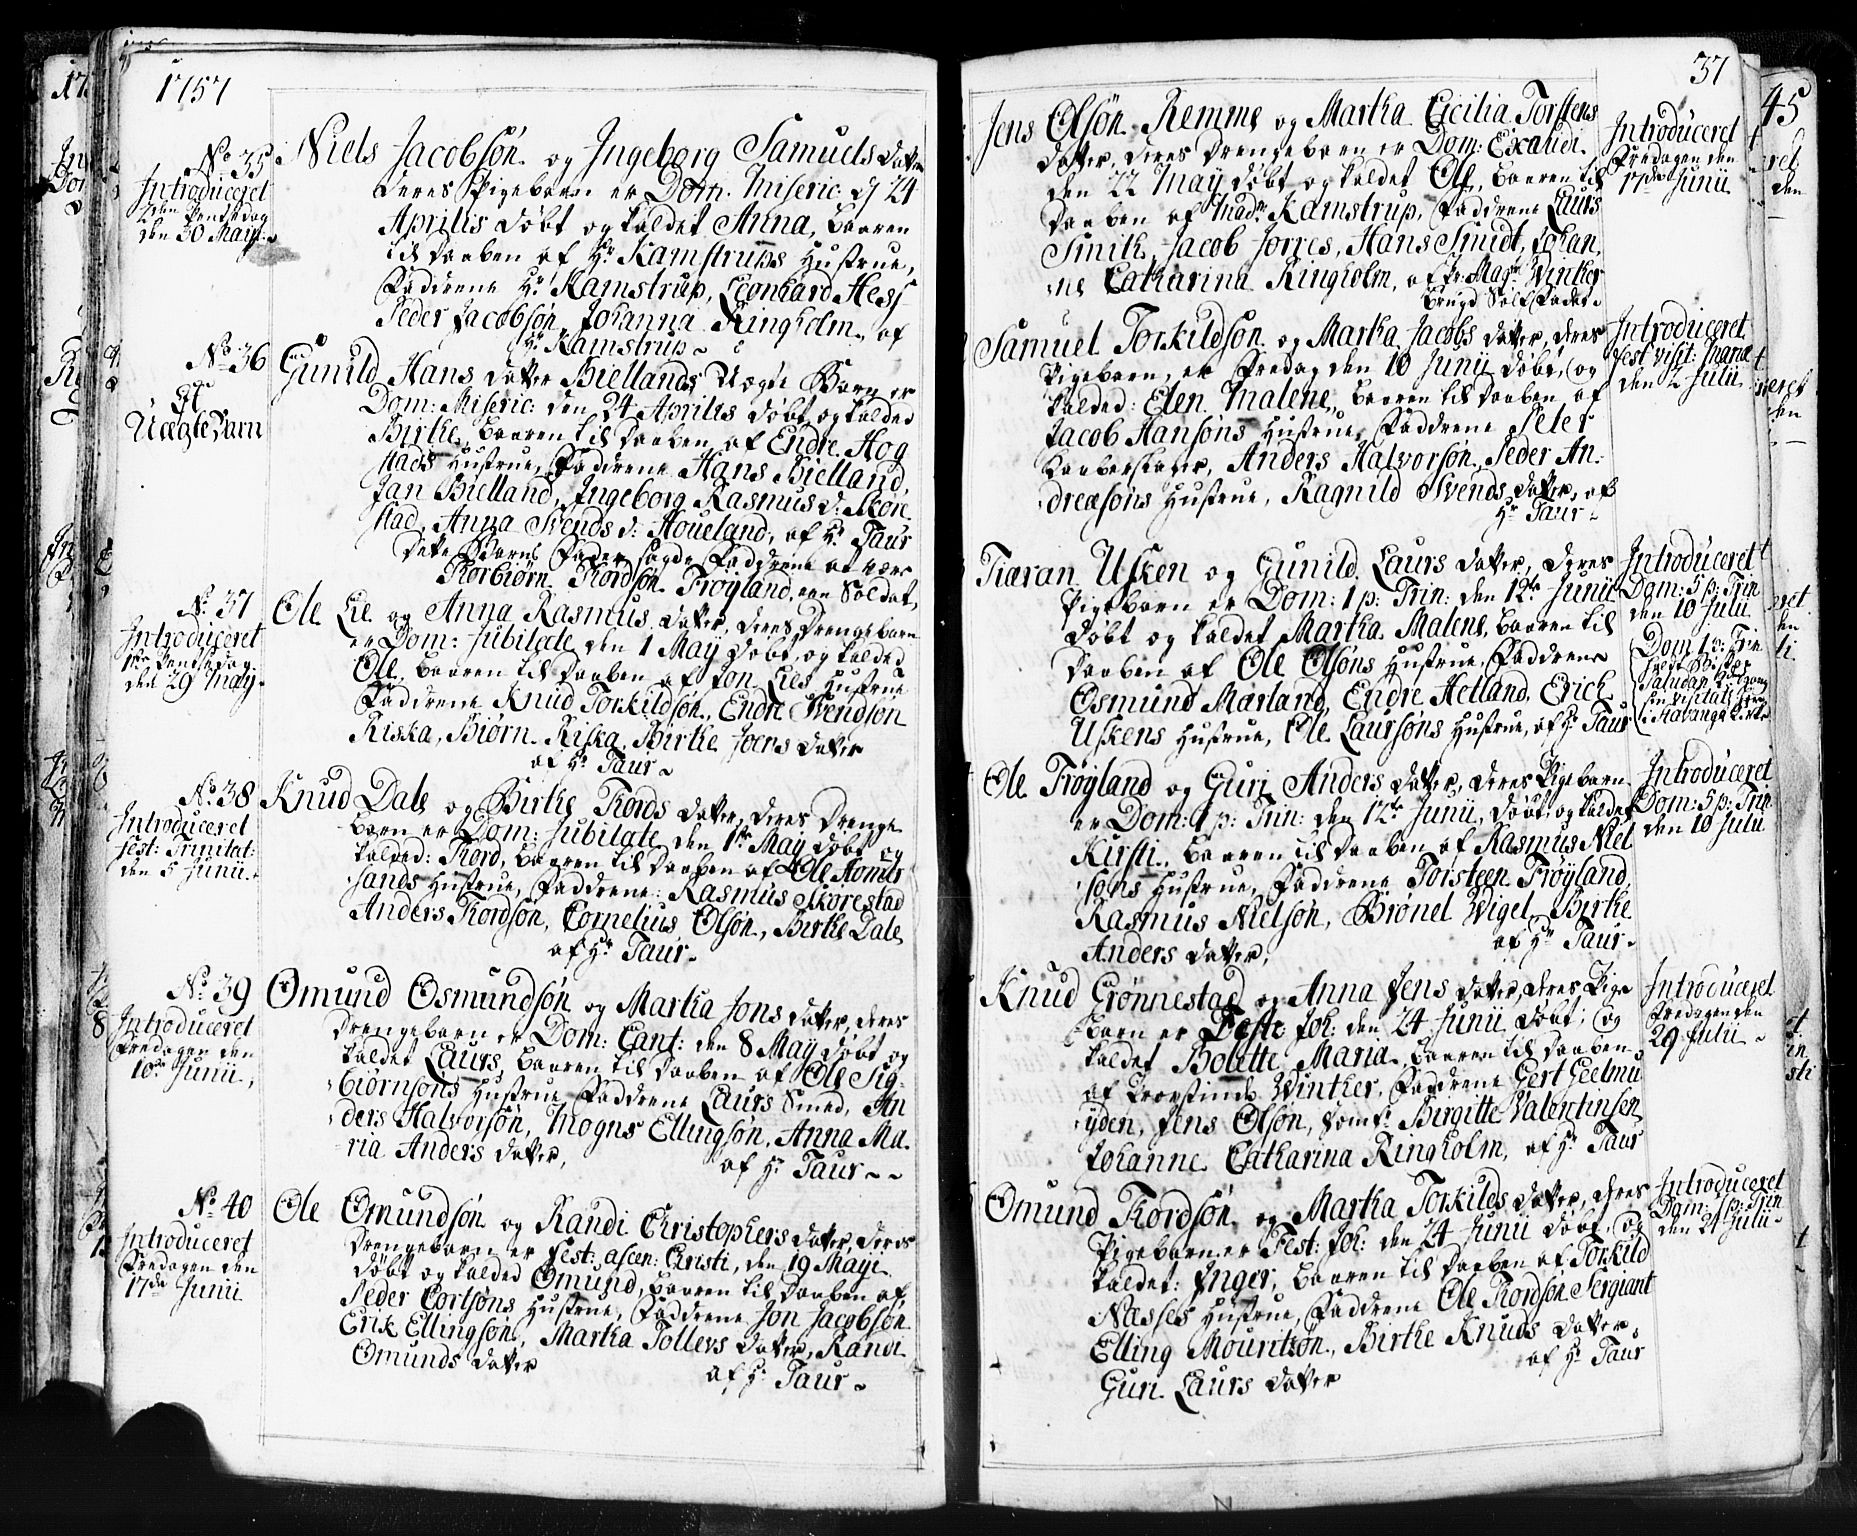 1757
No 35
Introduceret
2den Pentsedag
den 30 Maji
Niels Jacobsön og Ingeborg Samuels datter
deres Pigebarn er Dom. Miseric. d 24
Aprilis døbt og kaldet Anna, baaren
til daaben af Hr Kamstrups Hustrue,
Faddrene Hr Kamstrup, Leonhard Hess
Peder Jacobsön, Johanna Ringholm af
Hr Kamstrup
No 36
et
Uægte Barn
Gunild Hans datter Biellands Uægte Barn er
Dom: Miseric: den 24 Aprilis døbt og kalded
Birthe, baaren til daaben af Endre Hog
stads Hustrue, Faddrene Hans Bielland,
Jan Bielland, Ingeborg Rasmus d: Skøre
stad, Anna Svends d: Houeland, af Hr Taur
dette Barns Fader sagde Faddrene at være
Torbiørn Tordsøn Frøyland, een Soldat,
No 37
Introduceret
1ste Pentsedag
den 29 Maij
Ole Lie og Anna Rasmus datter, deres Drengebarn
er Dom: Jubilate den 1 Maij døbt, og kalded
Ole, baaren til daaben af Jon Lies Hustrue
Faddrene Knud Torkildsøn, Endre Svendsøn
Riska, Biørn Riska, Birthe Joens datter
af Hr Taur
No 38
Introduceret
fest: Trinitat:
den 5 Junii
Knud Dale og Birthe Tords datter, deres Drenge
barn er Dom: Jubilate den 1ste Maij døbt og
kalded: Tord, baaren til daaben af Ole Aamds
sands Hustrue, Faddrene: Rasmus Skørestad
Anders Tordsøn, Cornelius Olsøn, Birthe Dale,
af Hr Taur
No 39
Introduceret
Fredagen den
10de Junii,
Omund Osmundsøn og Martha Jons datter, deres
Drengebarn er Dom: Cant: den 8 Maij døbt og
kaldet Laurs, baaren til daaben af Ole Sig-
biørnsøns Hustrue, Faddrene Laurs Smed, An
ders Halvorsøn, Mogns Ellingsøn, Anna Ma-
ria Anders datter,
af Hr Taur
No 40
Introduceret
Fredagen den
17de Junii
Ole Omundsøn og Randi Christophers datter, deres
Drengebarn er fest: ascen: Christi, den 19 Maji
døbt og kalded Omund, baaren til daaben af
Peder Cortsøns Hustrue, Faddrene Jon Jacobsøn
Erik Ellingsøn, Martha Tollevs datter, Randi
Omunds datter
af Hr Taur
37
Jens Olsøn Remme og Martha Cicilia Torstens
datter, deres Drengebarn er Dom: Exaudi
den 22 Maij døbt og kaldet Ole, baaren til
daaben af Madm Kamstrup, Faddrene Laurs
Smith, Jacob Jorres, Hans Smidt, Johan,
ne Catharina Ringholm, af Hr Magr Winther
Introduceret
Fredagen den
17de Junii
Samuel Torkildsøn og Martha Jacobs datter, deres
Pigebarn, er Fredag den 10 Junij døbt, og
kalded: Elen Malene, baaren til daaben af
Jacob Hansøns Hustrue, Faddrene Peter
Anders Halvorsøn, Peder An-
dreæsøns Hustrue, Ragnild Svends datter, af
Hr Taur
Introduceret
fest visit: Mariæ
den 2 Julii
Tiæran Usken og Gunild Laurs datter, deres
Pigebarn er Dom: 1 p: Trin: den 12te Junii
døbt og kaldet Martha Malene, baaren til
daaben af Ole Olsøns Hustrue, Faddrene
Osmund Marland, Endre Hetland, Erich
Uskens Hustrue, Ole Laursøns Hustrue, af Hr Taur
Introduceret
Dom: 5 p: Trin
den 10 Julii
Dom 1 p: Trin
holdt Bisper
Paludan
sin visitats
i Stavanger Kirke
Ole Frøyland og Guri Anders datter, deres Pigebarn
er Dom: 1 p: Trin: den 12te Junii, døbt, og kaldet
Kirsti, baaren til daaben af Rasmus Niel
sons Hustrue, Faddrene Torsteen Frøyland
Rasmus Nielsøn, Brønel Wigel, Birthe
Anders datter,
af Hr Taur
Introduceret
Dom: 5 p: Trin
den 10 Julii
Knud Grønnestad og Anna Jens datter, deres Pige
barn er Feste Joh: den 24 Junii døbt, og
kaldet Bolette Maria baaren til daaben
af Provstinde Winther, Faddrene Gert Geelmu
yden, Jens Olsøn, Jomfr Birgitte Valentinsen,
Johanne Catharina Ringholm, af Hr Taur
Introduceret
Fredagen den
29 Julii
Omund Tordsøn og Martha Torkilds datter, deres
Pigebarn er Fest: Joh: den 24 Junii døbt, og
kaldet: Inger, baaren til daaben af Torkild
Næsses Hustrue, Faddrene Ole Tordsøn Sergiant
Elling Mouritsøn, Birthe Knuds datter,
Guri Laurs datter
af Hr Taur
Introduceret
Dom: 7 p: Trin
den 24 Julii
45